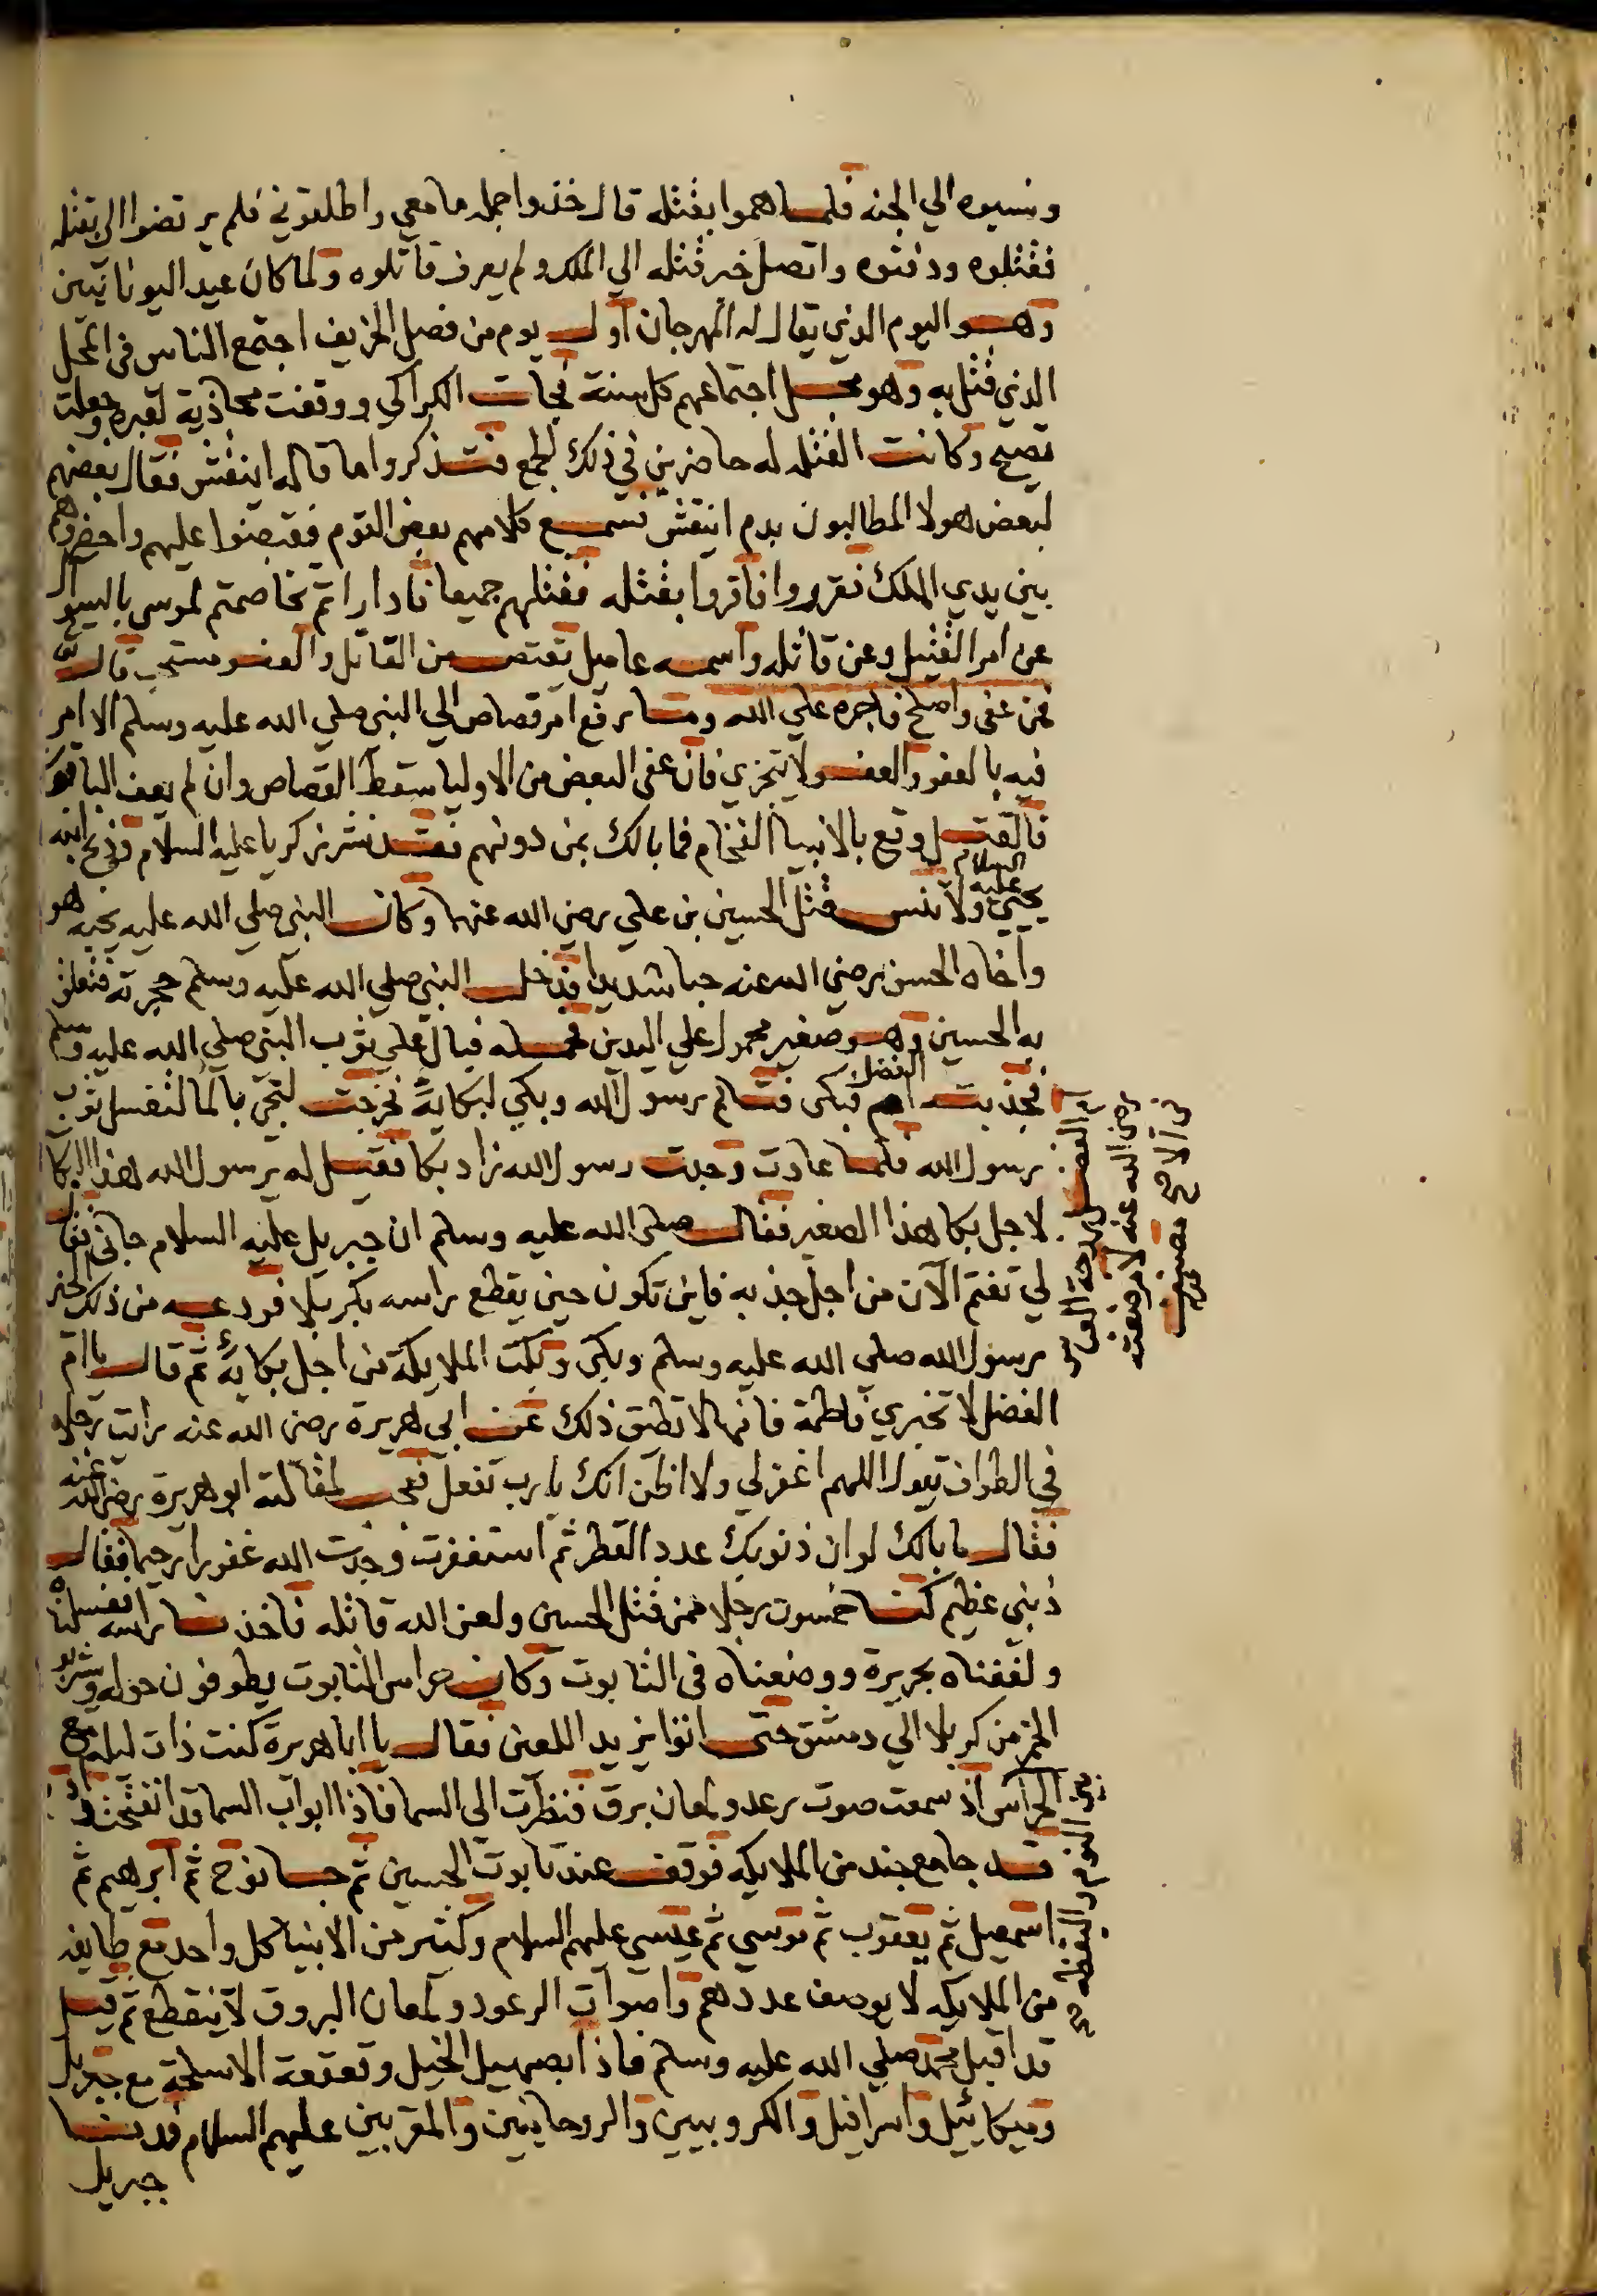 ونسبوه الي الجنه فلما هموا بقتله قال خذوا جمله ما معي واطلقوني فلم يرتضوا الي بقتله
فقتلوه ودفنوه واتصل خبر قتله الي الملك ولم يعرف قاتلوه ولما كان عيد اليونانيين
وهو اليوم الذي يقال له المهرجان اول يوم من فصل الخريف اجتمع الناس في المحل
الذي قتل به وهو محل اجتماعهم كل سنة فجات الكراكي ووقفت محاذية لقبره وجعلت
تصيح وكانت القتله له حاضرين في ذلك الجمع فتذكروا ما قاله اينقش فقال بعضهم
لبعض هولا المطالبون بدم اينقش فسمع كلامهم بعض القوم فقبضوا عليهم واحضروهم
بين يدي الملك فقرروا فاقروا بقتله فقتلهم جميعا فادارأتم تخاصمتم لموسي بالسوال
عن امر القتيل وعن قاتله واسمه عاميل يقتص من القاتل والعفو مستحب قال تعالى
فمن عفى واصلح فاجره علي الله وما رفع امر قصاص الي النبي صلي الله عليه وسلم الا امر
فيه بالعفو والعفو لا يتجزي فان عفى البعض من الاوليا سقط القصاص وان لم يعف الباقون
فالقتل وقع بالانبيا الفخام فما بالك بمن دونهم فقد نشر زكريا عليه السلام وذبح ابنه
يحيي عليه السلام ولا تنس قتل الحسين بن علي رضي الله عنهما وكان النبي صلي الله عليه يحبه هو
واخاه الحسن رضي الله عنه حبا شديدا فدخل النبي صلي الله عليه وسلم حجرته فتعلق
به الحسين وهو صغير محمول علي اليدين فحمله فبال علي ثوب النبي صلي الله عليه وسلم
فجذبته ام الفضل فبكى فتالم رسول الله وبكي لبكايه فخرجت لتجي بالما لتغسل ثوب
رسول الله فلما عادت وجدت رسول الله زاد بكا فقيل له يرسول الله هذا البكا
لاجل بكا هذا الصغير فقال صلي الله عليه وسلم ان جبريل عليه السلام جاني فقال
لي تغتم الآن من اجل جذبه فاين تكون حين يقطع راسه بكربلا فدمعه من ذلك الخبر
رسول الله صلي الله عليه وسلم وبكى وبكت الملايكة من اجل بكايه ثم قال يا ام
الفضل لا تخبري فاطمة فانها لا تطيق ذلك عن ابي هريرة رضي الله عنه رايت رجلا
في الطواف يقول اللهم اغفر لي ولا اظن انك يارب تفعل فعجب لمقالته ابو هريرة رضي الله عنه
فقال ما بالك لو ان ذنوبك عدد القطر ثم استغفرت وجدت الله غفورا رحيما فقال
ذنبي عظيم كنا خمسون رجلا ممن قتل الحسين ولعن الله قاتله فاخذنا راسه فغسلناه
ولففناه بحريرة ووضعناه في التابوت وكان حراس التابوت يطوفون حوله وشربو
الخمر من كربلا الي دمشق حتى اتوا يزيد اللعين فقال يا ابا هريرة كنت ذات ليله مع
الحراس اذ سمعت صوت رعد ولمعان برق فنظرت الى السما فاذا ابواب السما قد انفتحت وآدم
قد جا مع جند من الملايكه فوقف عند تابوت الحسين ثم جا نوح ثم ابرهيم ثم
اسمعيل ثم يعقوب ثم موسي ثم عيسي عليهم السلام وكثير من الانبيا كل واحد مع طايفه
من الملايكه لا يوصف عددهم واصوات الرعود ولمعان البروق لا ينقطع ثم قيل
قد اقبل محمد صلي الله عليه وسلم فاذا بصهيل الخيل وقعقعة الاسلحة مع جبريل
وميكائيل واسرافيل والكروبيين والروحانيين والمقربين عليهم السلام فدنا
جبريل
ام الفضل زوجة العباس
رضي الله عنه لا مرضعته
بين النوم واليقظه